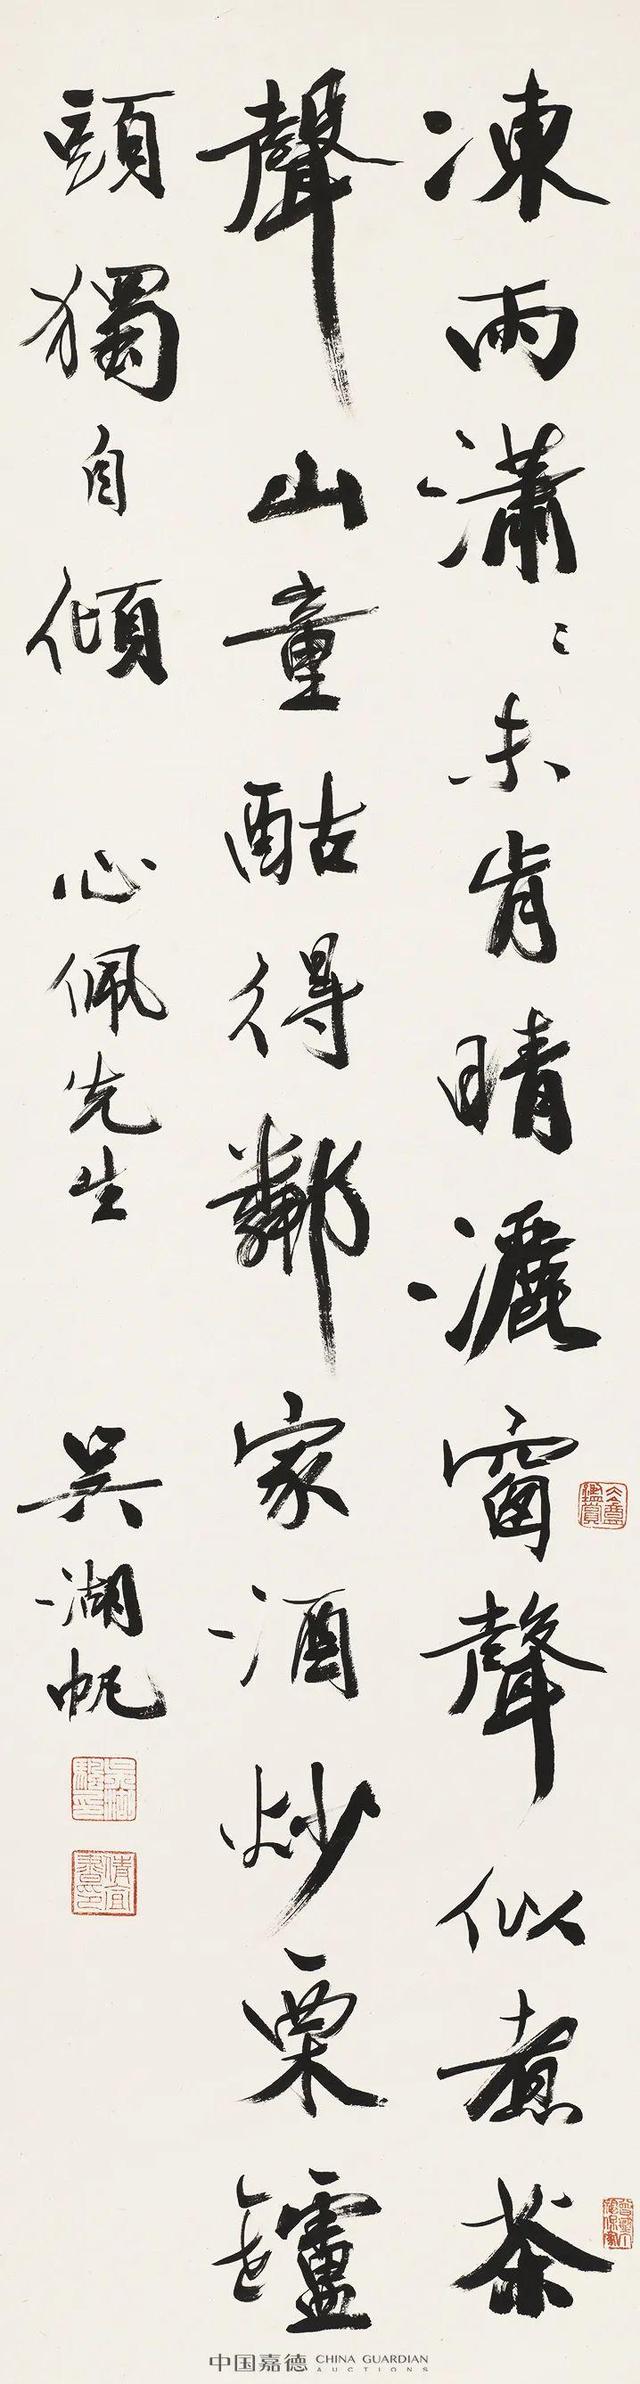 凍雨瀟〻未肯晴灑窗聲似煮茶
聲山童酤得鄰家酒炒栗鑪
頭獨自傾
心佩先生
吳湖帆
中国嘉德 CHINA GUARDIAN
AUCTIONS